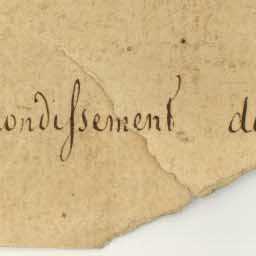 ondiſsement de